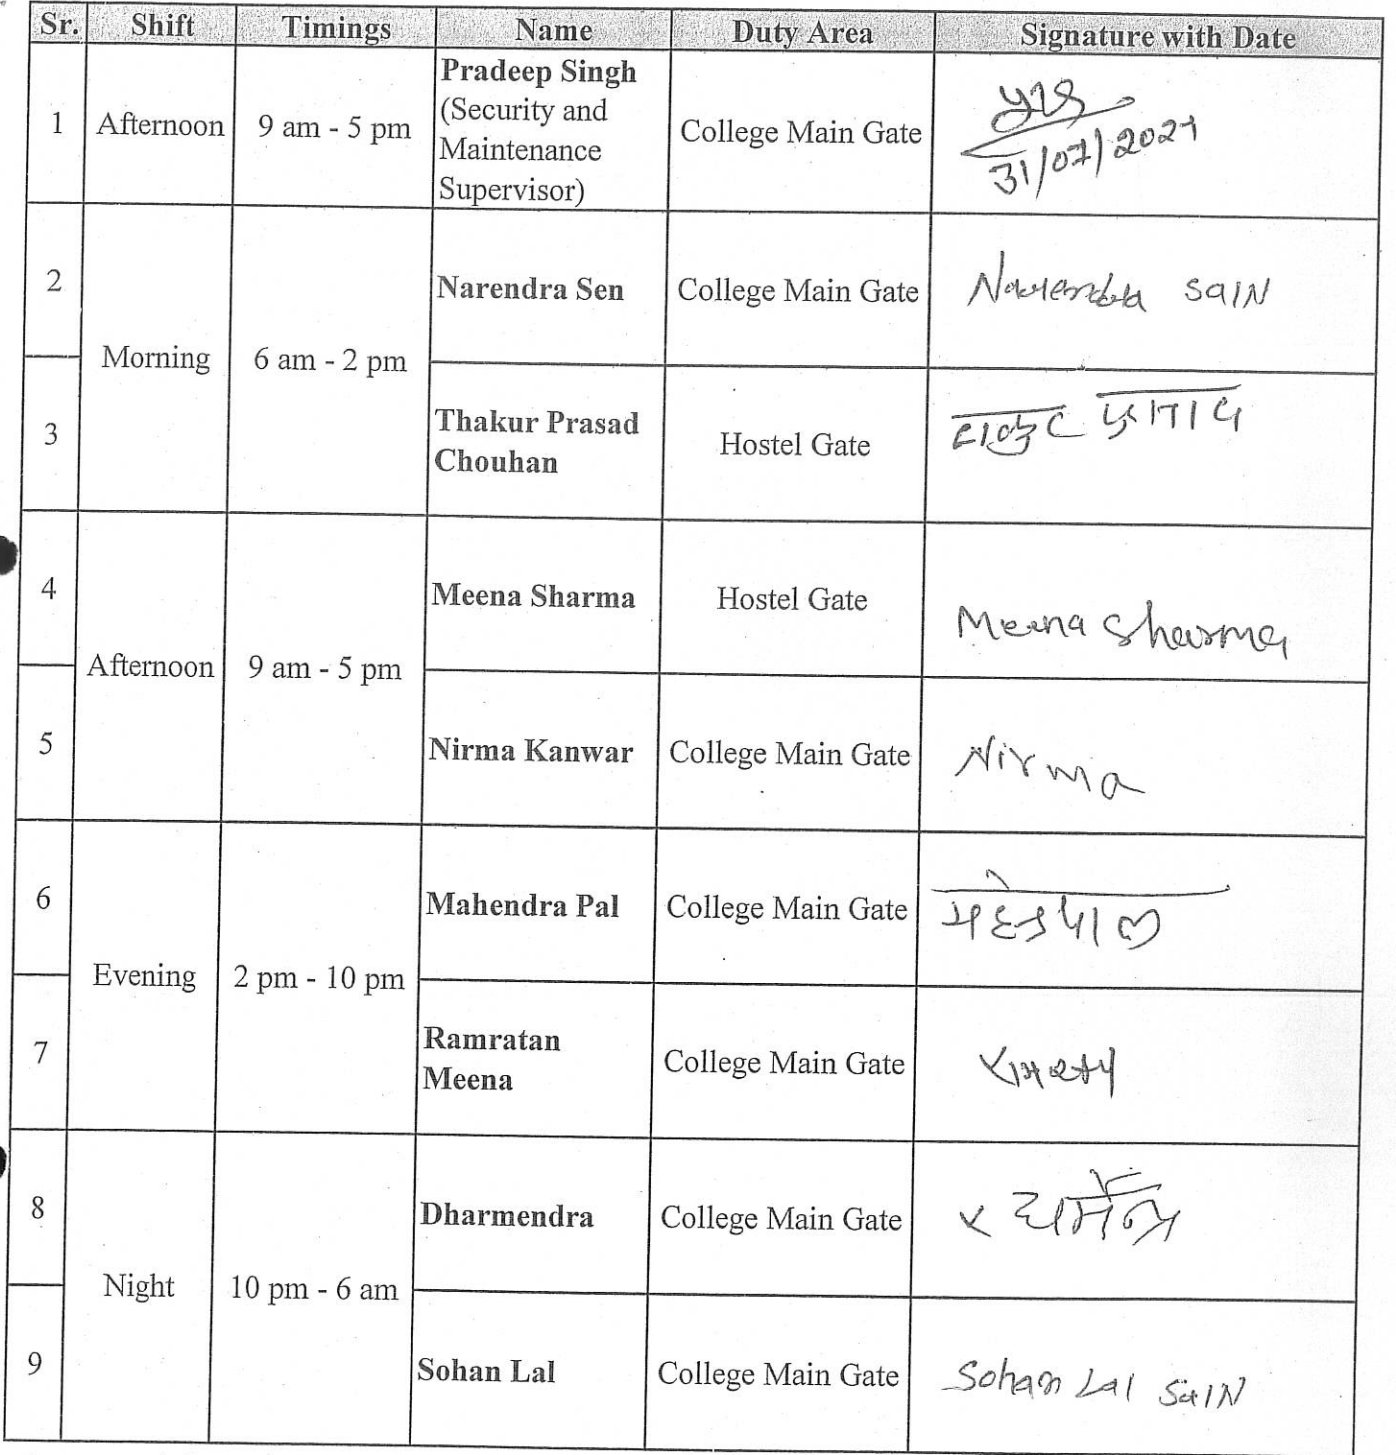 Sr. Shift Timings Name Duty Area Signature with Date
1 Afternoon 9 am - 5 pm Pradeep Singh (Security and Maintenance Supervisor) College Main Gate
31/07/2021
2 Morning 6 am - 2 pm Narendra Sen College Main Gate Narendra SaIN
3 Thakur Prasad Chouhan Hostel Gate ठाकुर प्रसाद
4 Afternoon 9 am - 5 pm Meena Sharma Hostel Gate Meena Sharma
5 Nirma Kanwar College Main Gate Nirma
6 Evening 2 pm - 10 pm Mahendra Pal College Main Gate
7 Ramratan Meena College Main Gate
8 Night 10 pm - 6 am Dharmendra College Main Gate धर्मेन्द्र
9 Sohan Lal College Main Gate Sohan Lal SaIN